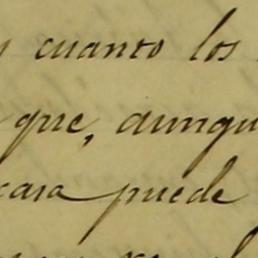 y cuanto los
que, aunqu
cara puede